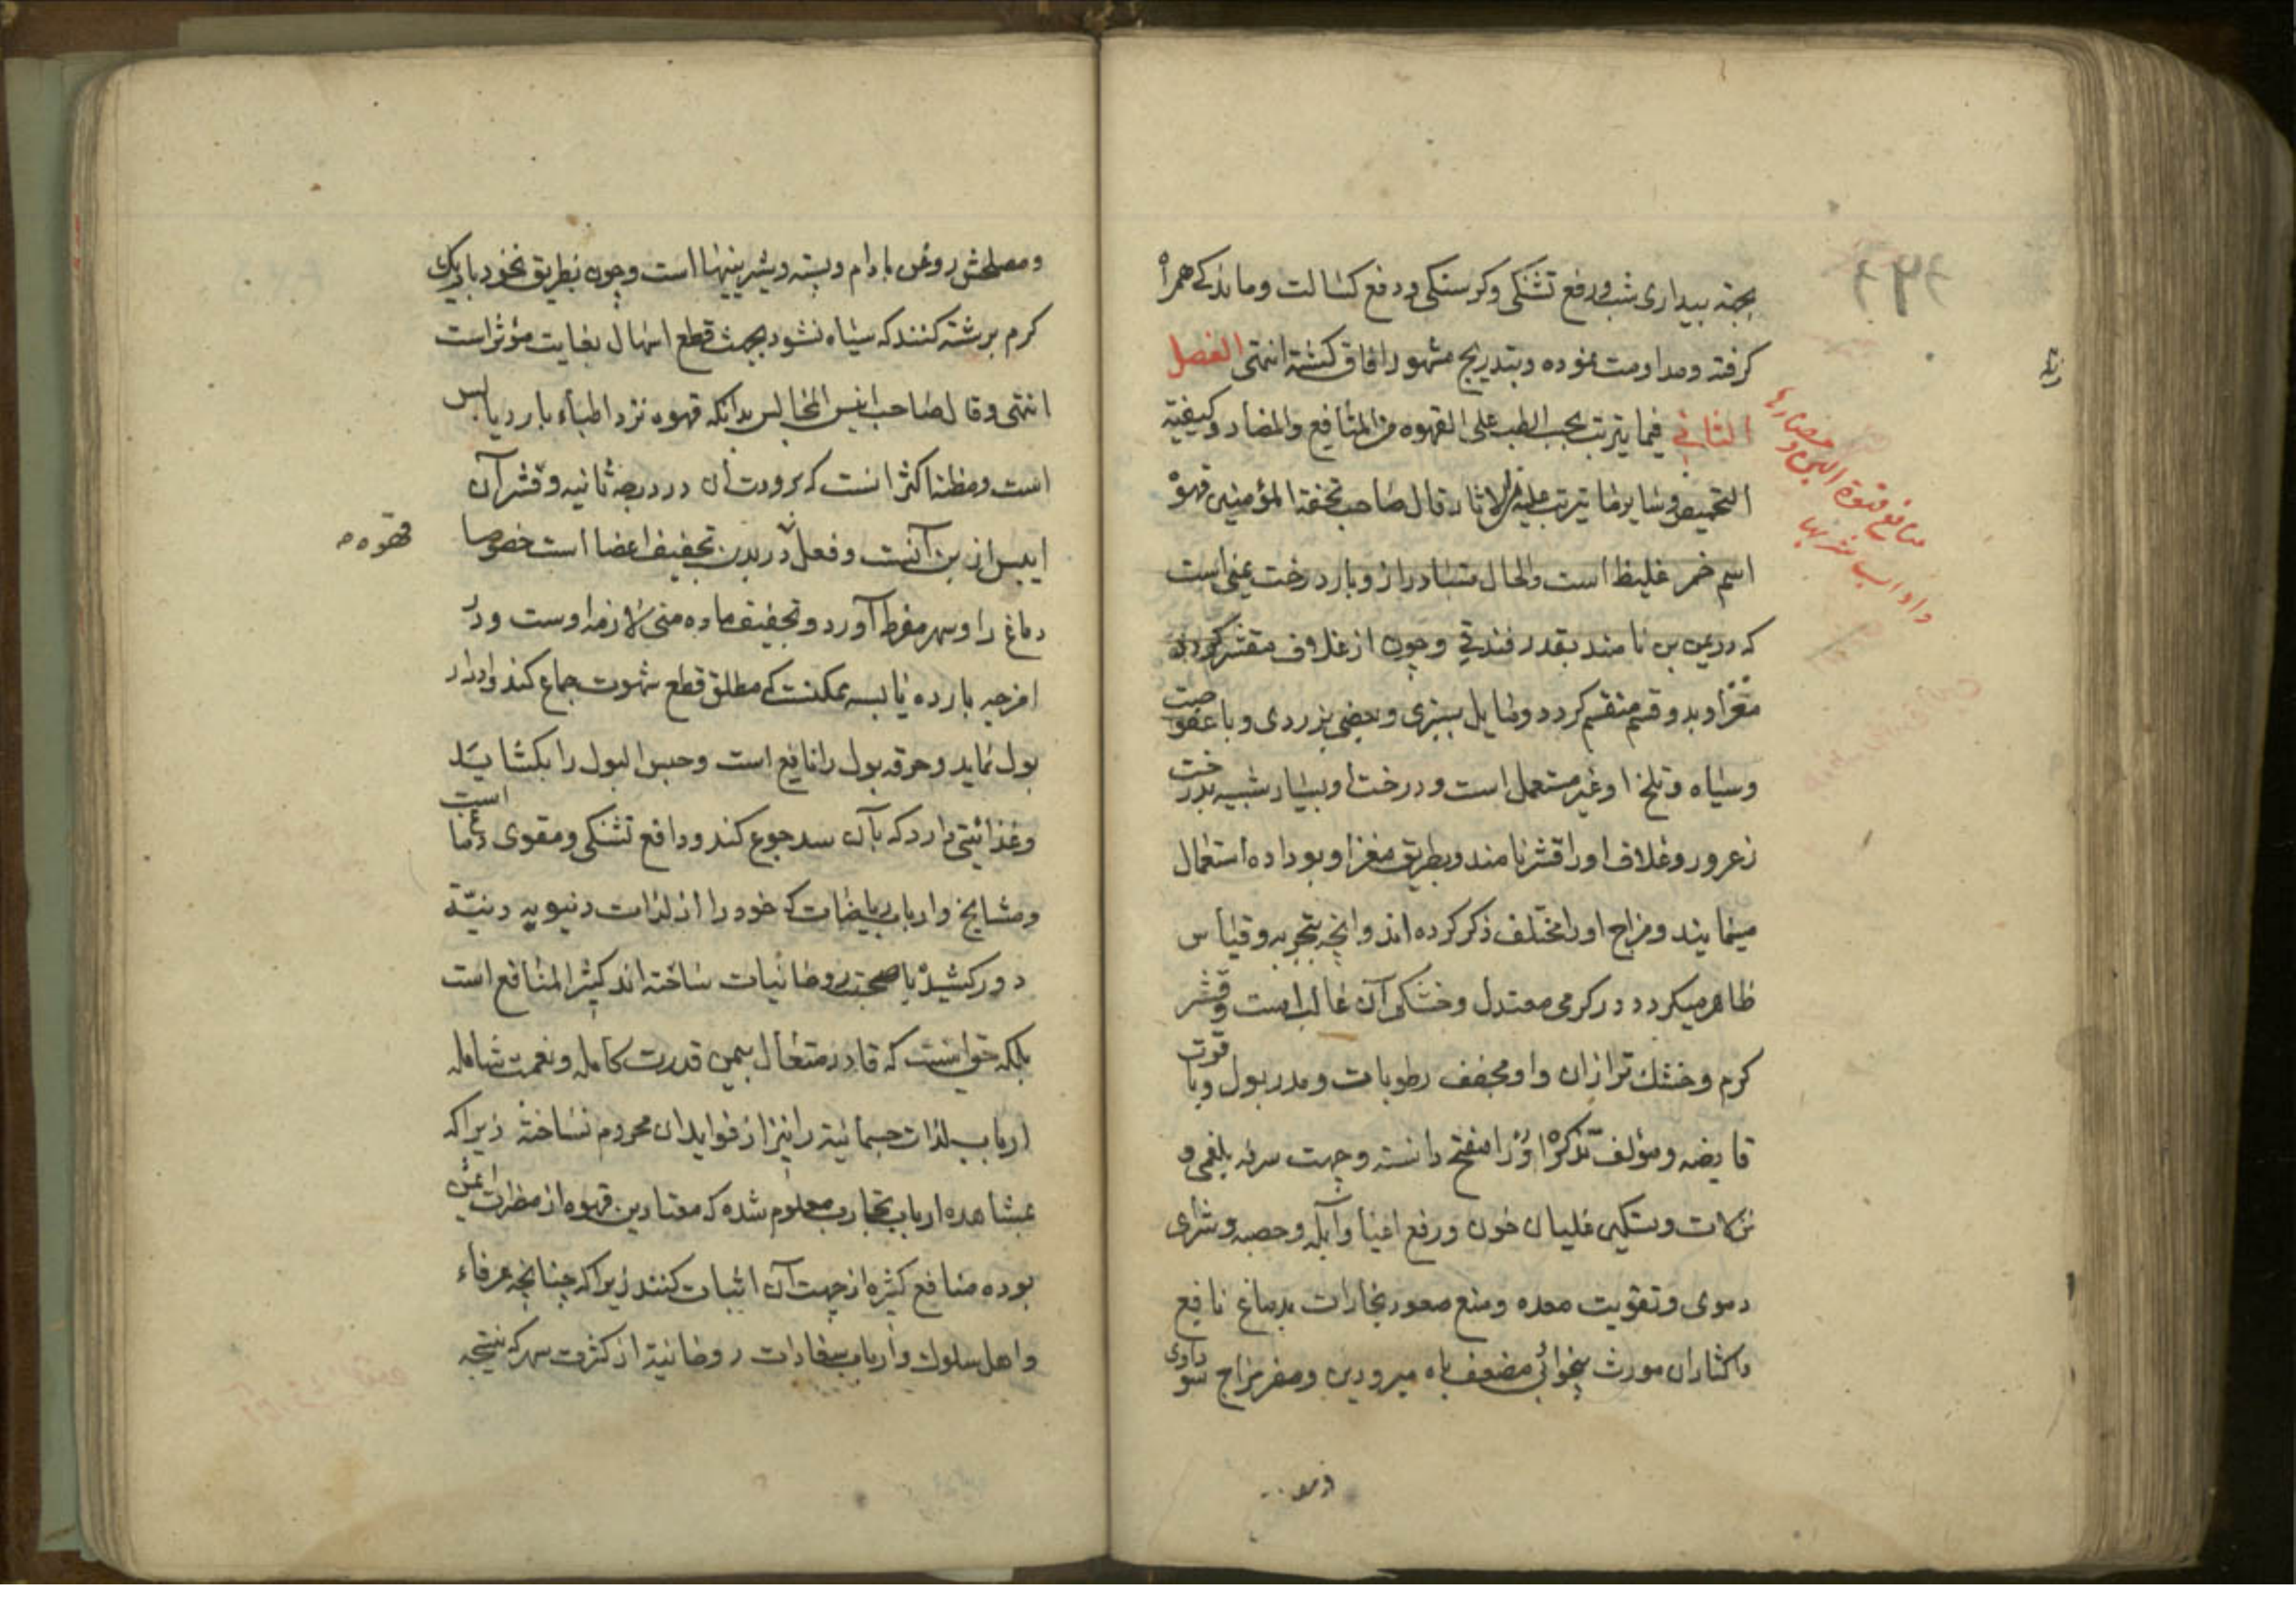 بجهة بیداری شب و رفع تشنکی و کرسنکی و دفع کسالت و ماندکی همراه
کرفته و مداومت نموده و بتدریج مشهور آفاق کشته انتهی الفصل
الثانی فیما یترتب بحسب الطب علی القهوه من المنافع والمضار و کیفیة
التحمیص و سایر ما یترتب علیه من الاثار قال صاحب تحفة المؤمنین قهوه
اسم خمر غلیظ است والحال متبادر ازو بار درخت یمنی است
که در یمن بن نامند بقدر فندقی و چون از غلاف مقشر کردد
مغز او بدو قسم منقسم کردد و مایل بسبزی و بعضی بزردی و با عفوصت
و سیاه و تلخ او غیر مستعمل است و درخت او بسیار شبیه بدرخت
زعرور و غلاف او را قشر نامند و بطریق مغز او بو داده استعمال
مینمایند و مزاج او را مختلف ذکر کرده اند و انچه بتجربه و قیاس
ظاهر میکردد در کرمی معتدل و خشکی آن غالب است و قشر
کرم و خشك تر از ان و او مجفف رطوبات و مدر بول و با قوت
قابضه و مؤلف تذکره او را مفتح دانسته و جهت سرفه بلغمی و
نزلات و تسکین غلیان خون و رفع اعیا و آبله و حصبه و شرای
دموی و تقویت معده و منع صعود بخارات بدماغ نافع
و اکثار ان مورث بیخوابی مضعف باه مبرودین و مضر مزاج سوداوی
منافع قهوة البن و مضارها
و اداب شربها
و مصلحش روغن بادام و پسته و شیرینیها است و چون بطریق نخود با ریك
کرم برشته کنند که سیاه نشود بجهت قطع اسهال بغایت مؤثر است
انتهی و قال صاحب انیس المجالس بدانکه قهوه نزد اطباء بارد یابس
است و مظنه اکثر انست که برودت آن در درجه ثانیه و قشر آن
ایبس از بن آنست و فعل در بدن تجفیف اعضا است خصوصا
دماغ را و سهر مفرط آورد و تجفیف ماده منی لازمه اوست و در
امزجه بارده یابسه ممکنست که مطلق قطع شهوت جماع کند و ادرار
بول نماید و حرقه بول را نافع است و حبس البول را بکشاید
و غذائیتی دارد که بآن سد جوع کند و دافع تشنکی و مقوی دماغ است
و مشایخ و ارباب ریاضات که خود را از لذات دنیویه دنیّة
دور کشیده با صحبت روحانیات ساخته اند کثیر المنافع است
بلکه حق انست که قادر متعال بیمن قدرت کامله و نعمت شامله
ارباب لذات جسمانیة را نیز از فواید ان محروم نساخته زیرا که
بمشاهده ارباب تجارب معلوم شده که معتادین قهوه از مضرات ایمن
بوده منافع کثیره از جهت آن اثبات کنند زیرا که چنانچه عرفاء
و اهل سلوك و ارباب سعادات روحانیة از کثرت سهر که نتیجه
قهوه